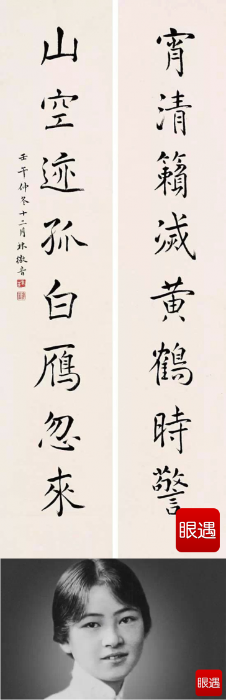 宵清籟滅黄鶴時警
山空迹孤白鴈忽來
壬午仲冬十二月林徽音
眼遇
眼遇